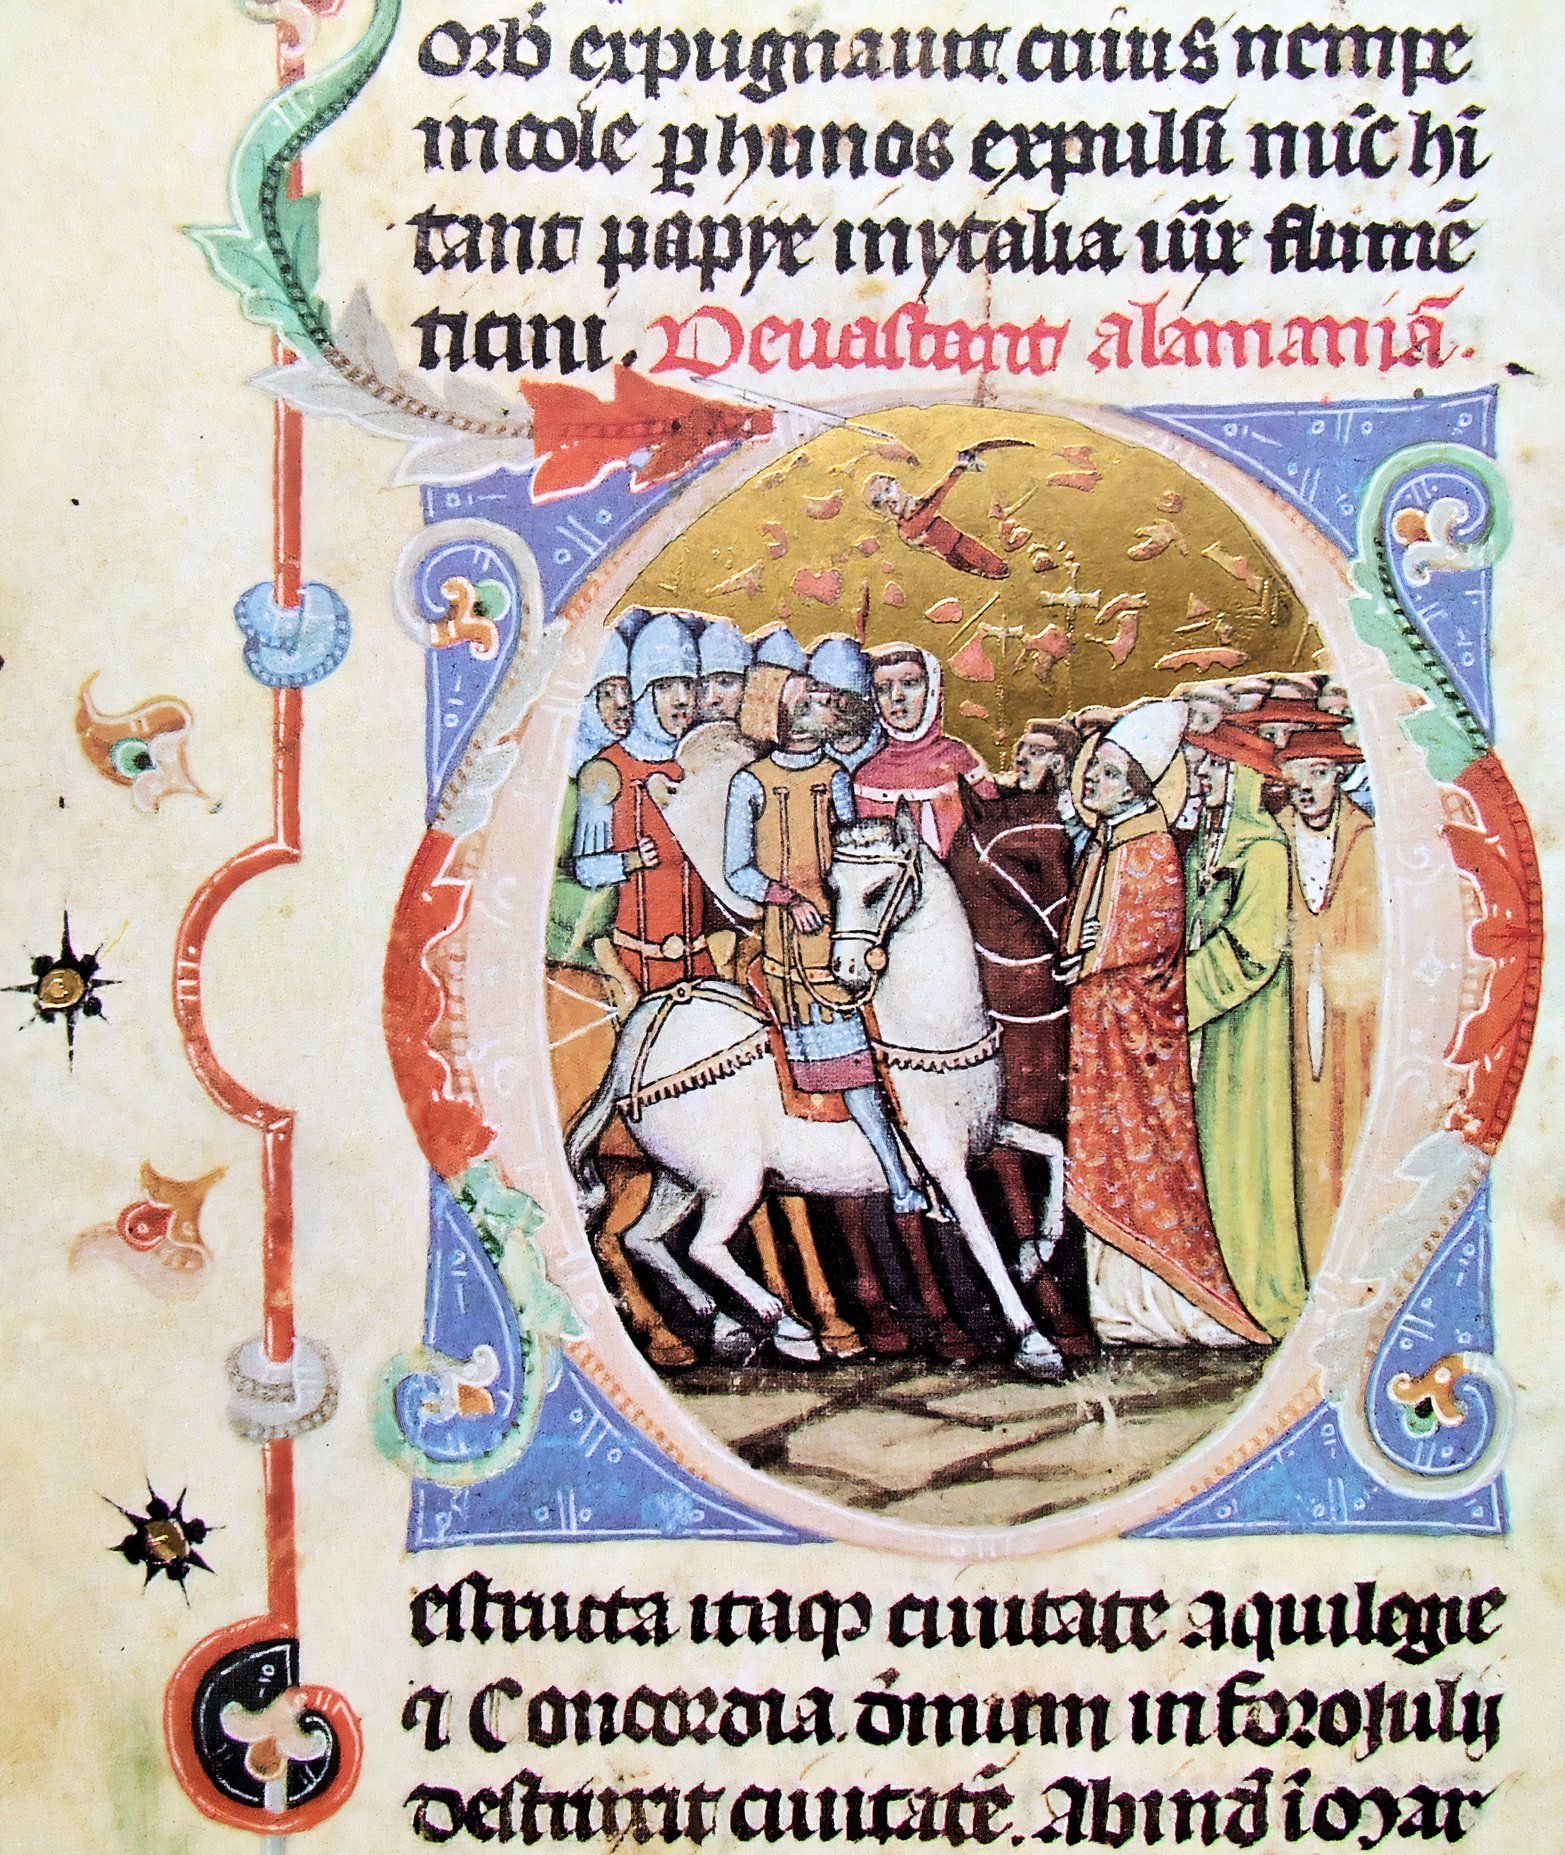 orb̄ expugnauit. cuius nempe
incole ꝑ hunos expulsi nūc hī
tant papye in ytalia iux̄ flumē
ticini. Deuastant alamaniā.
estructa itaqꝫ ciuitate aquilegie
⁊ Concordia. dm̄um in foroiulij
destruxit ciuitatē. Ab ind̄ i mar